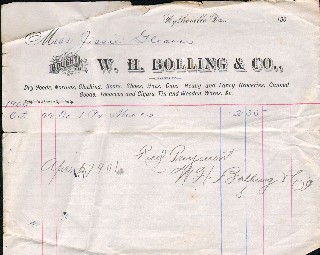 Wytheville Va. 190
Miss Jessie Graves
W. H. BOLLING & CO.,
Dry Goods, Notions, Clothing, Boots, Shoes, Hats, Caps, Heavy and Fancy Groceries, Canned
Goods, Tobaccos and Cigars, Tin and Wooden Wares, &c.
Oct 1 Pr Shoes 2 35
Rec'd Payment
W. H. Bolling & Co